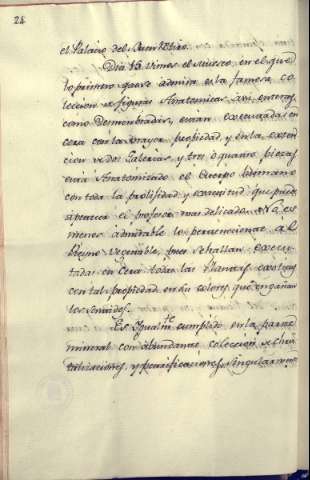 24
el Palacio del
Dia 15 vimos el museo, en el que
lo primero que se admira es la famosa co
leccion de figuras Anatomicas, asi enteras,
como desmembradas, que estan executadas en
cera con la mayor propiedad, y en la exten
cion de dos Galerias, y tres o quatro piezas
está Anatomizado el Cuerpo humano
con toda la prolixidad y exactitud que puede
apetecer el profesor mas delicado. No es
menos admirable lo perteneciente al
Reyno vegetable, pues se hallan execu
tadas en Cera todas las Plantas exoticas
con tal propiedad en sus colores, que engañan
los sentidos.
Es Igualmte. cumplido en la parte
mineral con abundante coleccion de chris
talizaciones, y petrificaciones, singularmte.